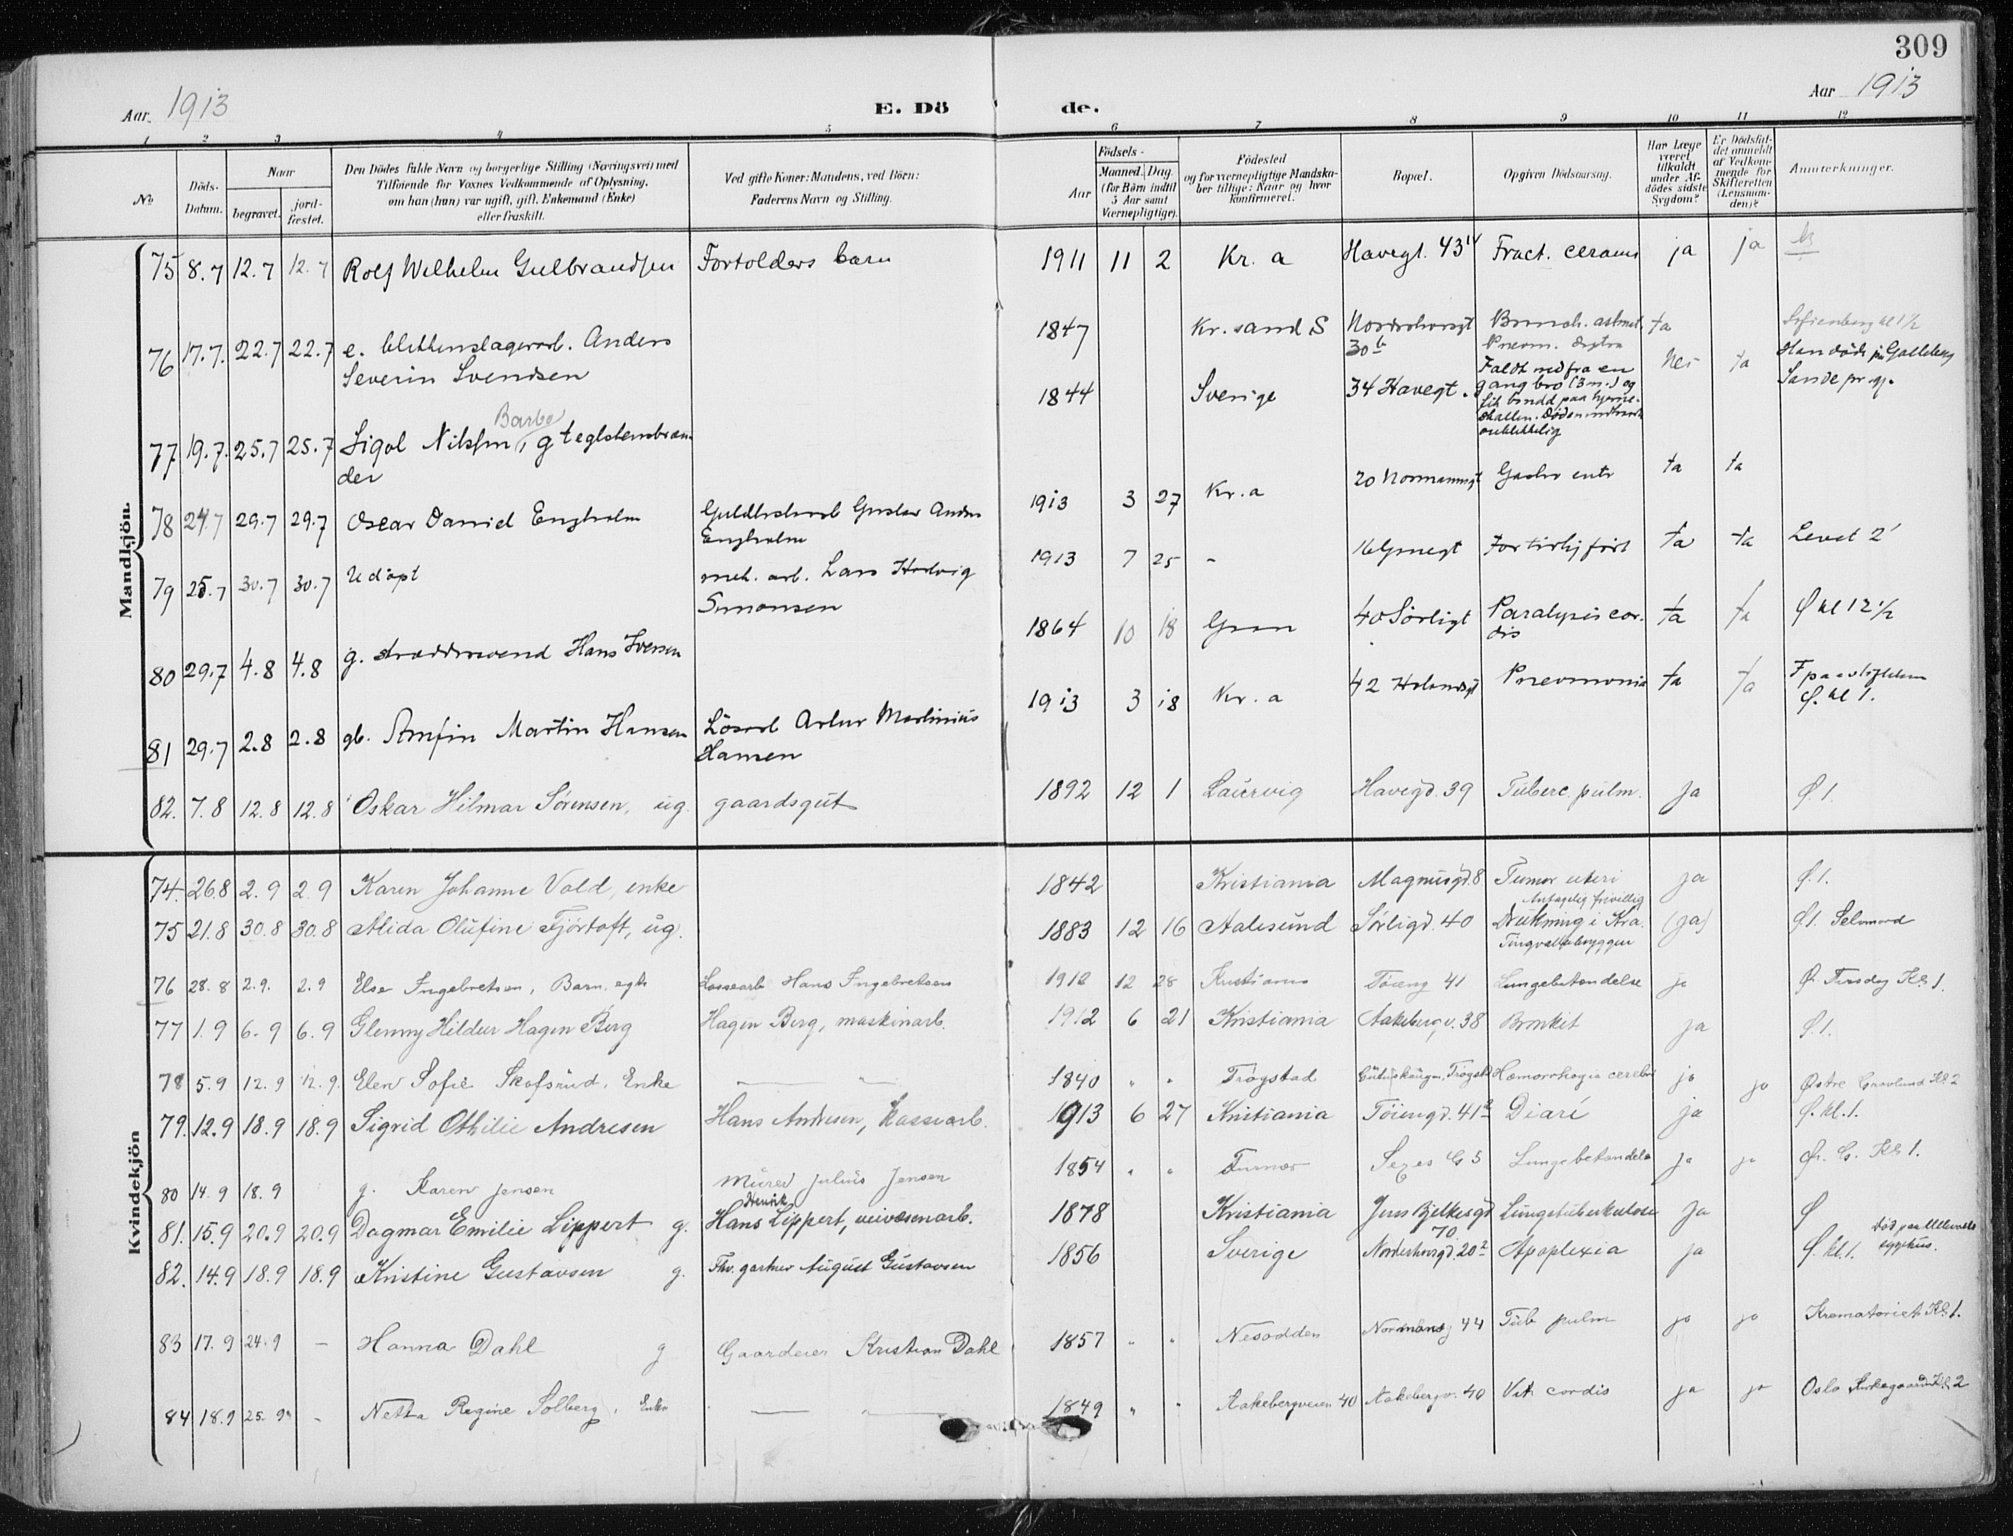 309
Aar 1913
E. Dö de.
Aar 1913
1 2 3 4 5 6 7 8 9 10 11 12
No
Döds-Datum.
Naar
begravet.
jord-fæstet.
Den Dödes fulde Navn og borgerlige Stilling (Næringsvei) med
Tilföiende for Voxnes Vedkommende af Oplysning,
om han (hun) var ugift, gift, Enkemand (Enke)
eller fraskilt.
Ved gifte Koner: Mandens, ved Börn:
Faderens Navn og Stilling.
Födsels-
Aar
Maaned. Dag.
(for Börn indtil
5 Aar samt
Værnepligtige).
Födested
og for værnepligtige Mandska-
ber tillige: Naar og hvor
konfirmeret.
Bopæl.
Opgiven Dödsaarsag.
Har Læge
været
tilkaldt
under Af-
dödes sidste
Sygdom?
Er Dödsfal-
det anmeldt
af Vedkom-
mende for
Skifteretten
(Lensman-
den)?
Anmerkninger.
Mandkjön.
75 8.7 12.7 12.7 Rolf Wilhelm Gulbrandsen Fortolders barn 1911 11 2 Kr. a Havegt. 43 Fract. ja ja
76 17.7. 22.7 22.7 e. blikkenslagerarb. Anders
Severin Svendsen 1847 Kr. sand S 30 b Bronch. ja
77 19.7. 25.7 25.7 Nilsen, g teglstensbræn
der 1844 Sverige 34 Havegt. Faldt ned fra en
gang bro (3 m.) og
fik brudd paa hjerne-
skallen. Døden
Nei ja Han døde paa
Sande pr.gj.
78 24.7 29.7 29.7 Oscar Daniel Engholm Gustav
Engholm 1913 3 27 Kr. a 20 Normannsgt Gastro entr ja ja
79 25.7 30.7 30.7 Udøpt mek. arb. Lars
Simonsen 1913 7 25 - 16 For tidlig født ja ja Levet 2
80 29.7 4.8 4.8 g. Hans Iversen 1864 10 18 Gran 40 Sørligt Paralysis cor-
dis ja ja Ø kl 12 1/2
81 29.7 2.8 2.8 gb. Arnfin Martin Hansen Løsarb Artur Martinius
Hansen 1913 3 18 Kr. a 42 Pneumonia ja ja
Ø. kl 1.
82. 7.8 12.8 12.8 Oskar Hilmar Sørensen, ug. gaardsgut 1892 12 1 Laurvig Havegd. 39 Tuberc. pulm. ja Ø 1.
Kvindekjön
74. 26.8 2.9 2.9 Karen Johanne Vold, enke 1842 Kristiania Magnusgd. 8 Tumor uteri ja Ø. 1.
75 21.8 30.8 30.8 Alida Olufine Fjörtoft, ug. 1883 12 16 Aalesund Sørligd. 40 Antagelig frivillig
Drukning i Kra.
Tingvallabryggen (ja) Ø1. Selvmord
76 28.8 2.9. 2.9 Else Ingebretsen, Barn, egte Lossearb Hans Ingebretsen 1912 12 28 Kristiania Töieng 41 Lungebetendelse ja Ø. Tirsdag Kl. 1.
77 1.9 6.9 6.9 Glenny Hildur Hagen Berg Hagen Berg, maskinarb. 1912 6 21 Kristiania Aakebergv. 38 Bronkit ja Ø. 1.
78 5.9 12.9 12.9. Elen Sofie Skofsrud, Enke 1840 " " Trögstad Hæmorrhagia cerebri ja ja Østre Gravlund Kl 2
79. 12.9 18.9 18.9 Sigrid Othilie Andresen Hans Andresen, kassearb. 1913 6 27 Kristiania Töiengd. 41 2 Diaré ja Ø. kl. 1.
80 14.9 18.9 g. Karen Jensen Murer Julius Jensen 1854 " " G 5 Lungebetendelse ja ja Ø. G. Kl 1.
81. 15.9 20.9 20.9 Dagmar Emilie Lippert g. Henrik
Hans Lippert, veivæsenarb. 1878 Kristiania Jens Bjelkesgd
70 Lungetuberkulose ja Ø
82. 14.9 18.9 18.9 Kristine Gustavsen g. Fhv. gartner August Gustavsen 1856 Sverige Norderhovsgd. 20 2 Apoplexia ja Ø. kl. 1. Död paa Ullevaals
sygehus.
83 17.9 24.9 - Hanna Dahl g Gaardeier Kristian Dahl 1857 " " Nesodden Normansg 44 Tub pulm ja ja Krematoriet Kl. 1.
84 18.9 25.9 - Netta Regine Solberg, Enke 1849 " " Aakebergveien 40 Aakebergv. 40 Vit. cordis ja ja Oslo Kirkegaard Kl. 2